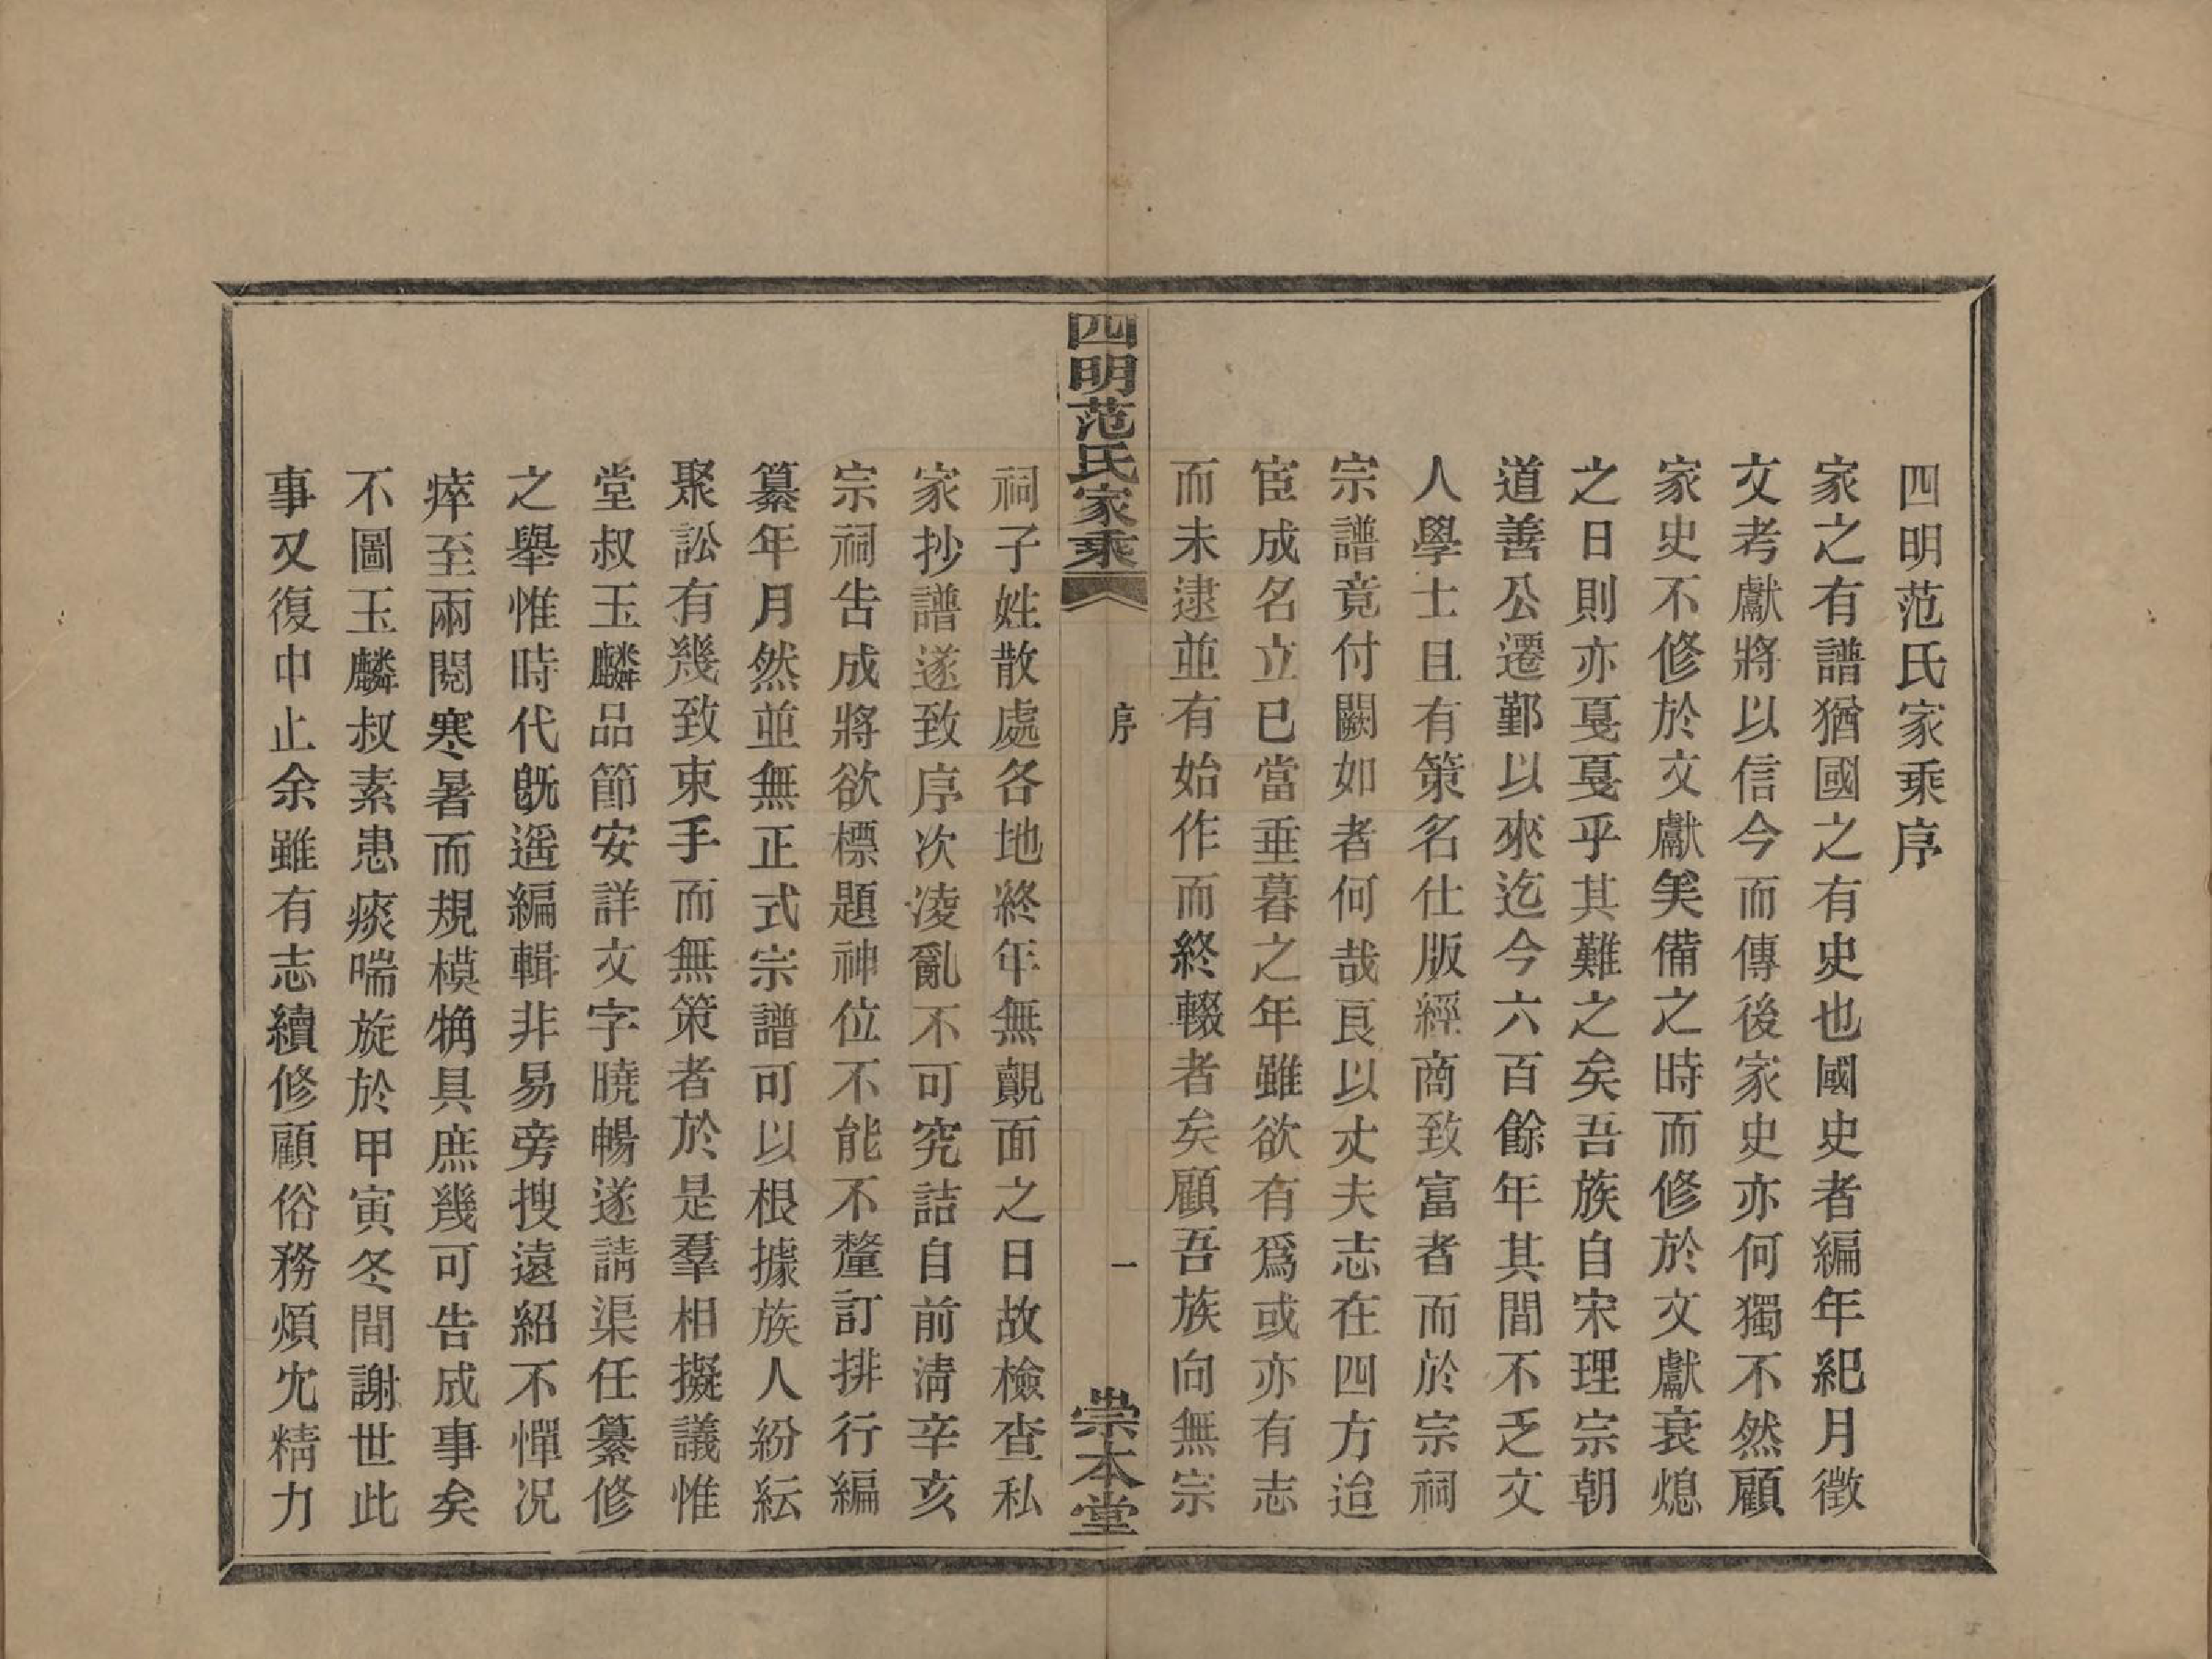 四明范氏家乘序
家之有譜猶國之有史也國史者編年紀月徵
文考獻將以信今而傳後家史亦何獨不然顧
家史不修於文獻美備之時而修於文獻衰熄
之日則亦戛戛乎其難之矣吾族自宋理宗朝
道善公遷鄞以來迄今六百餘年其間不乏文
人學士且有策名仕版經商致富者而於宗祠
宗譜竟付闕如者何哉良以丈夫志在四方迨
宦成名立已當垂暮之年雖欲有爲或亦有志
而未逮並有始作而終輟者矣顧吾族向無宗
四明范氏家乘
序
一
崇本堂
祠子姓散處各地終年無覿面之日故檢查私
家抄譜遂致序次凌亂不可究詰自前淸辛亥
宗祠告成將欲標題神位不能不釐訂排行編
纂年月然並無正式宗譜可以根據族人紛紜
聚訟有幾致束手而無策者於是羣相擬議惟
堂叔玉麟品節安詳文字曉暢遂請渠任纂修
之舉惟時代旣遥編輯非易旁搜遠紹不憚况
瘁至兩閱寒暑而規模觕具庶幾可告成事矣
不圖玉麟叔素患痰喘旋於甲寅冬間謝世此
事又復中止余雖有志續修顧俗務煩宂精力